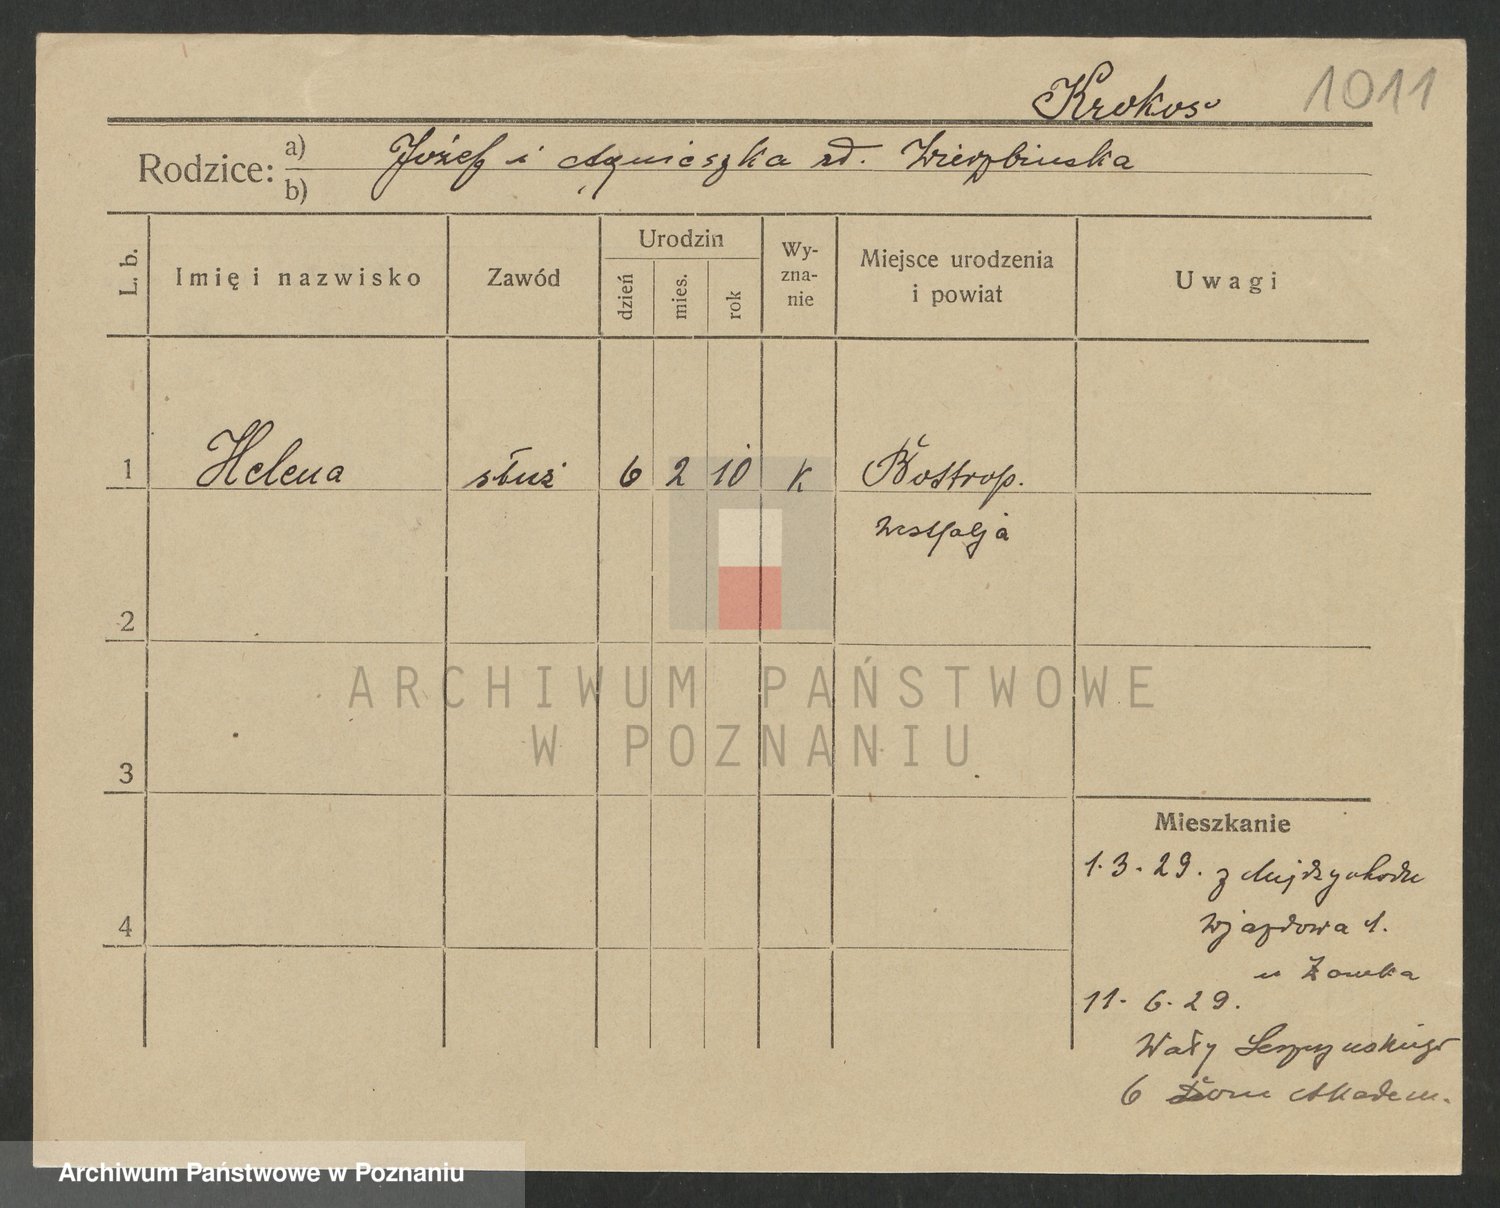 Krokos 1011
Rodzice: a) Józef i Agnieszka zd. Wierzbinska
b)
L. b. Imię i nazwisko Zawód Urodzin dzień mies. rok Wy-zna-nie Miejsce urodzenia i powiat Uwagi
1 Helena służ 6 2 10 K Bostrop.
Westfalja
2
ARCHIWUM PAŃSTWOWE
W POZNANIU
3
Mieszkanie
1.3.29. z Międzychodu
4 Wjazdowa 1.
u Zamka
11.6.29.
Wały Leszczyńskiego
6 Dom Akadem.
Archiwum Państwowe w Poznaniu